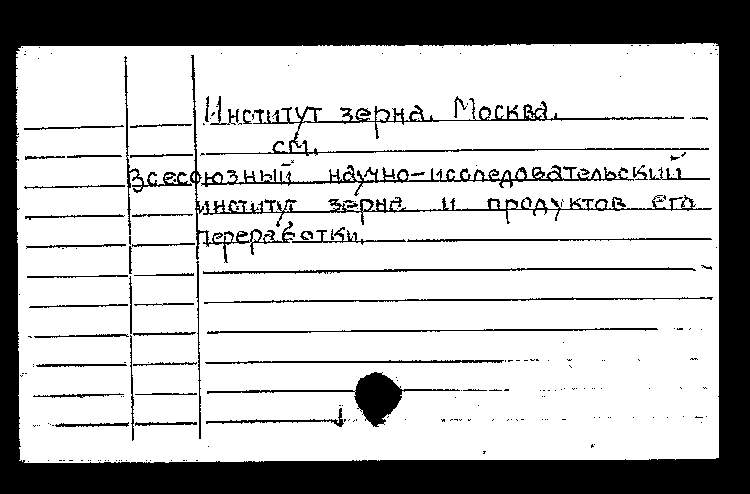 Институт зерна. Москва.
см.
Всесоюзный научно-исследовательский
институт зерна и продуктов его
переработки.